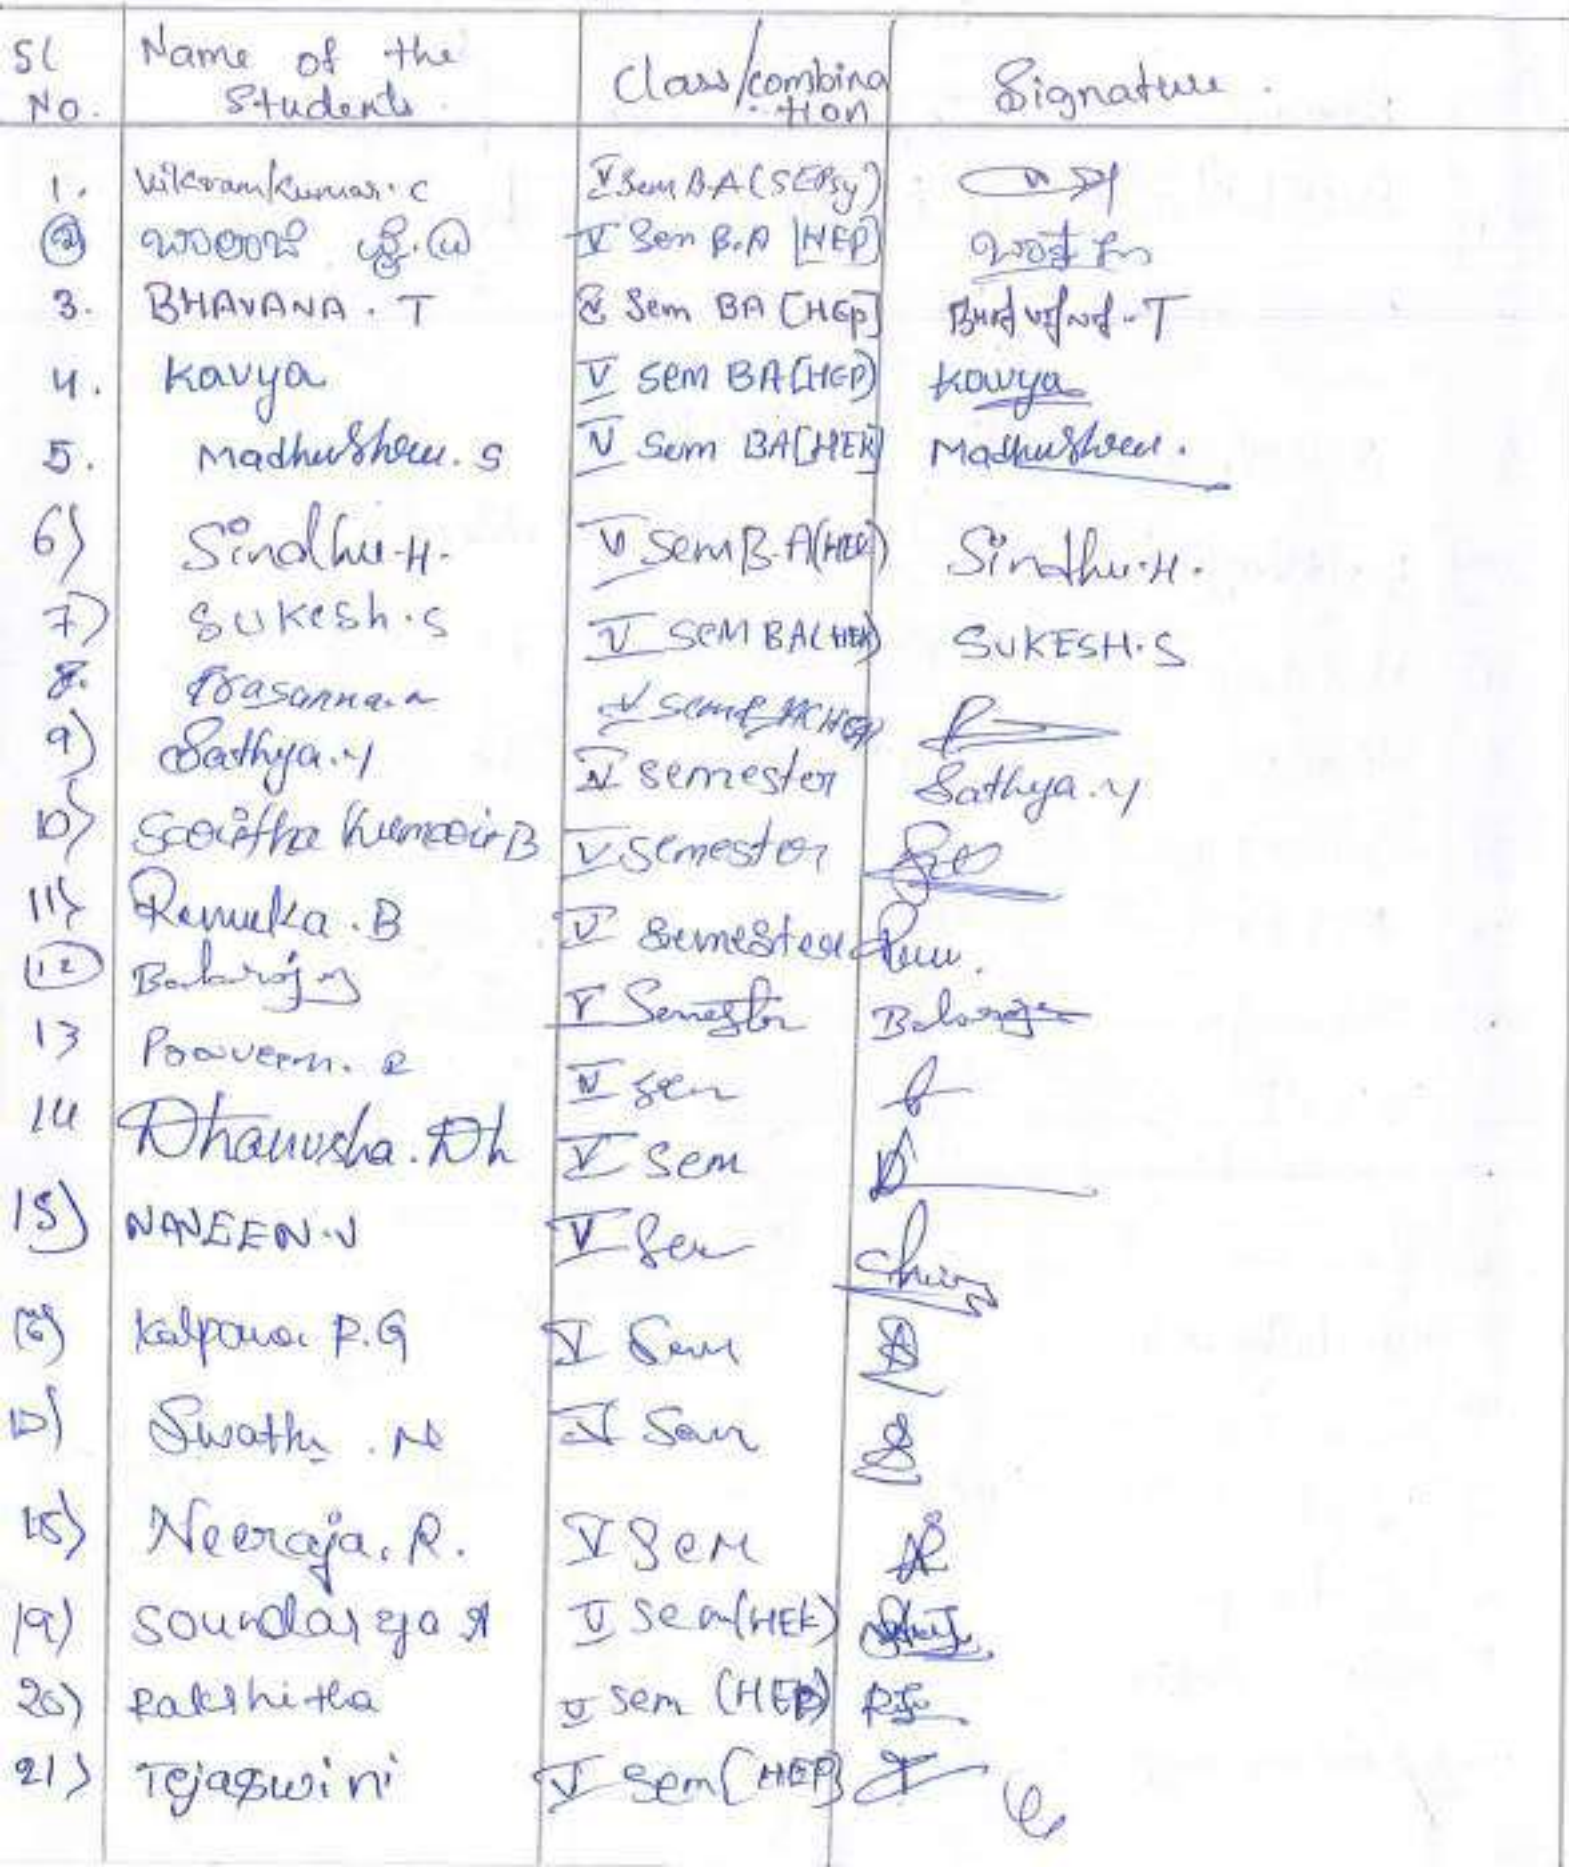 Sl No. Name of the Students. Class/combination Signature.
1. Vikramkumar.C V Sem B.A (SEPsy)
2 V Sem B.A [HEP]
3. BHAVANA. T V Sem BA [HEP]
4. Kavya V Sem BA [HEP) Kavya
5. Madhushree. S V Sem BA [HEK] Madhushree.
6) Sindhu.H. V Sem B.A (HEK) Sindhu.H.
7) SUKESh.S V SEM BA (HEK) SUKESH.S
8. Prasanna.n V Sem
9) Sathya.Y V semester Sathya.Y
10) V semester
11) Renuka.B V Semester Renu.
12 Balaraj V Semester Balaraj
13 Praveen. R V Sem
14 Dhanusha. Dh V Sem D
15) NAVEEN.V V Sem
16) Kalpana P.G V Sem
17) Swathi .N V Sem
18) Neeraja. R. V Sem
19) Soundarya V Sem (HEK)
20) Rakshitha V Sem (HEP)
21) Tejaswini V Sem [HEP]